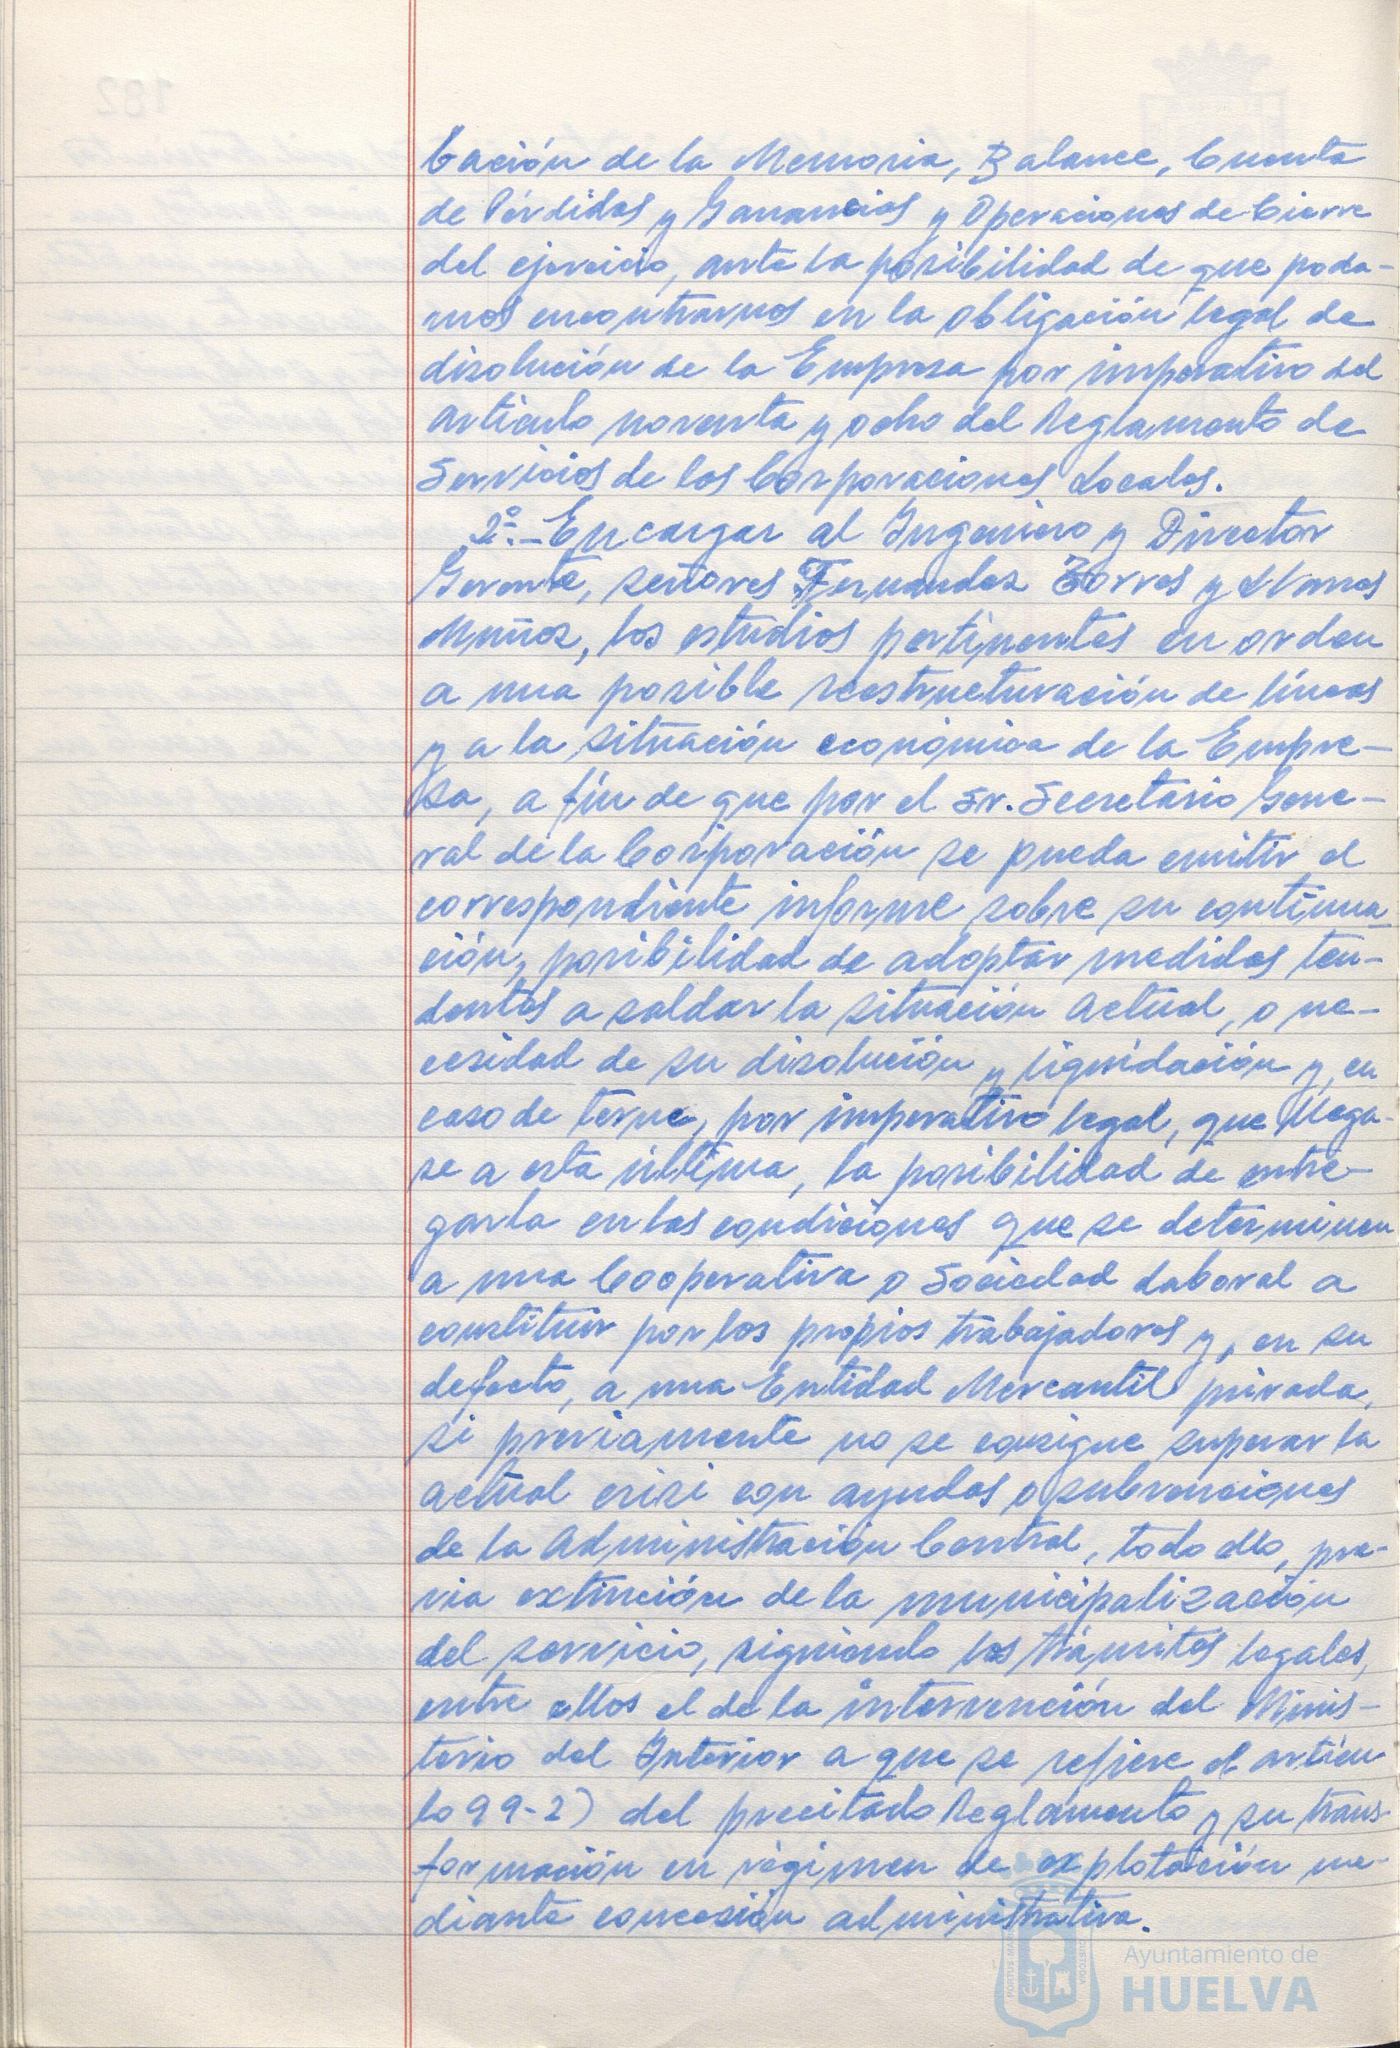 cación de la Memoria, Balance, Cuenta
de Pérdidas y Ganancias y Operaciones de Cierre
del ejercicio, ante la posibilidad de que poda-
mos encontrarnos en la obligación legal de
disolución de la Empresa por imperativo del
artículo noventa y ocho del Reglamento de
Servicios de las Corporaciones Locales.
2º.- Encargar al Ingeniero y Director
Gerente, señores Fernandez Torres y Llanes
Muñoz, los estudios pertinentes en orden
a una posible reestructuración de líneas
y a la situación económica de la Empre-
sa, a fin de que por el Sr. Secretario Gene-
ral de la Corporación se pueda emitir el
correspondiente informe sobre su continua
ción, posibilidad de adoptar medidas ten-
dentes a saldar la situación actual, o ne-
cesidad de su disolución y liquidación y, en
caso de terne, por imperativo legal, que llega-
se a esta última, la posibilidad de entre-
garla en las condiciones que se determinen
a una Cooperativa o Sociedad Laboral a
constituir por los propios trabajadores y, en su
defecto, a una Entidad Mercantil privada,
si previamente no se consigue superar la
actual crisi con ayudas o subvenciones
de la Administración Central, todo ello, pre-
via extinción de la municipalización
del servicio, siguiendo los trámites legales,
entre ellos el de la intervención del Minis-
terio del Interior a que se refiere el artícu
lo 99-2) del precitado Reglamento y su trans-
formación en régimen de explotación me-
diante concesión administrativa.
Ayuntamiento de
HUELVA